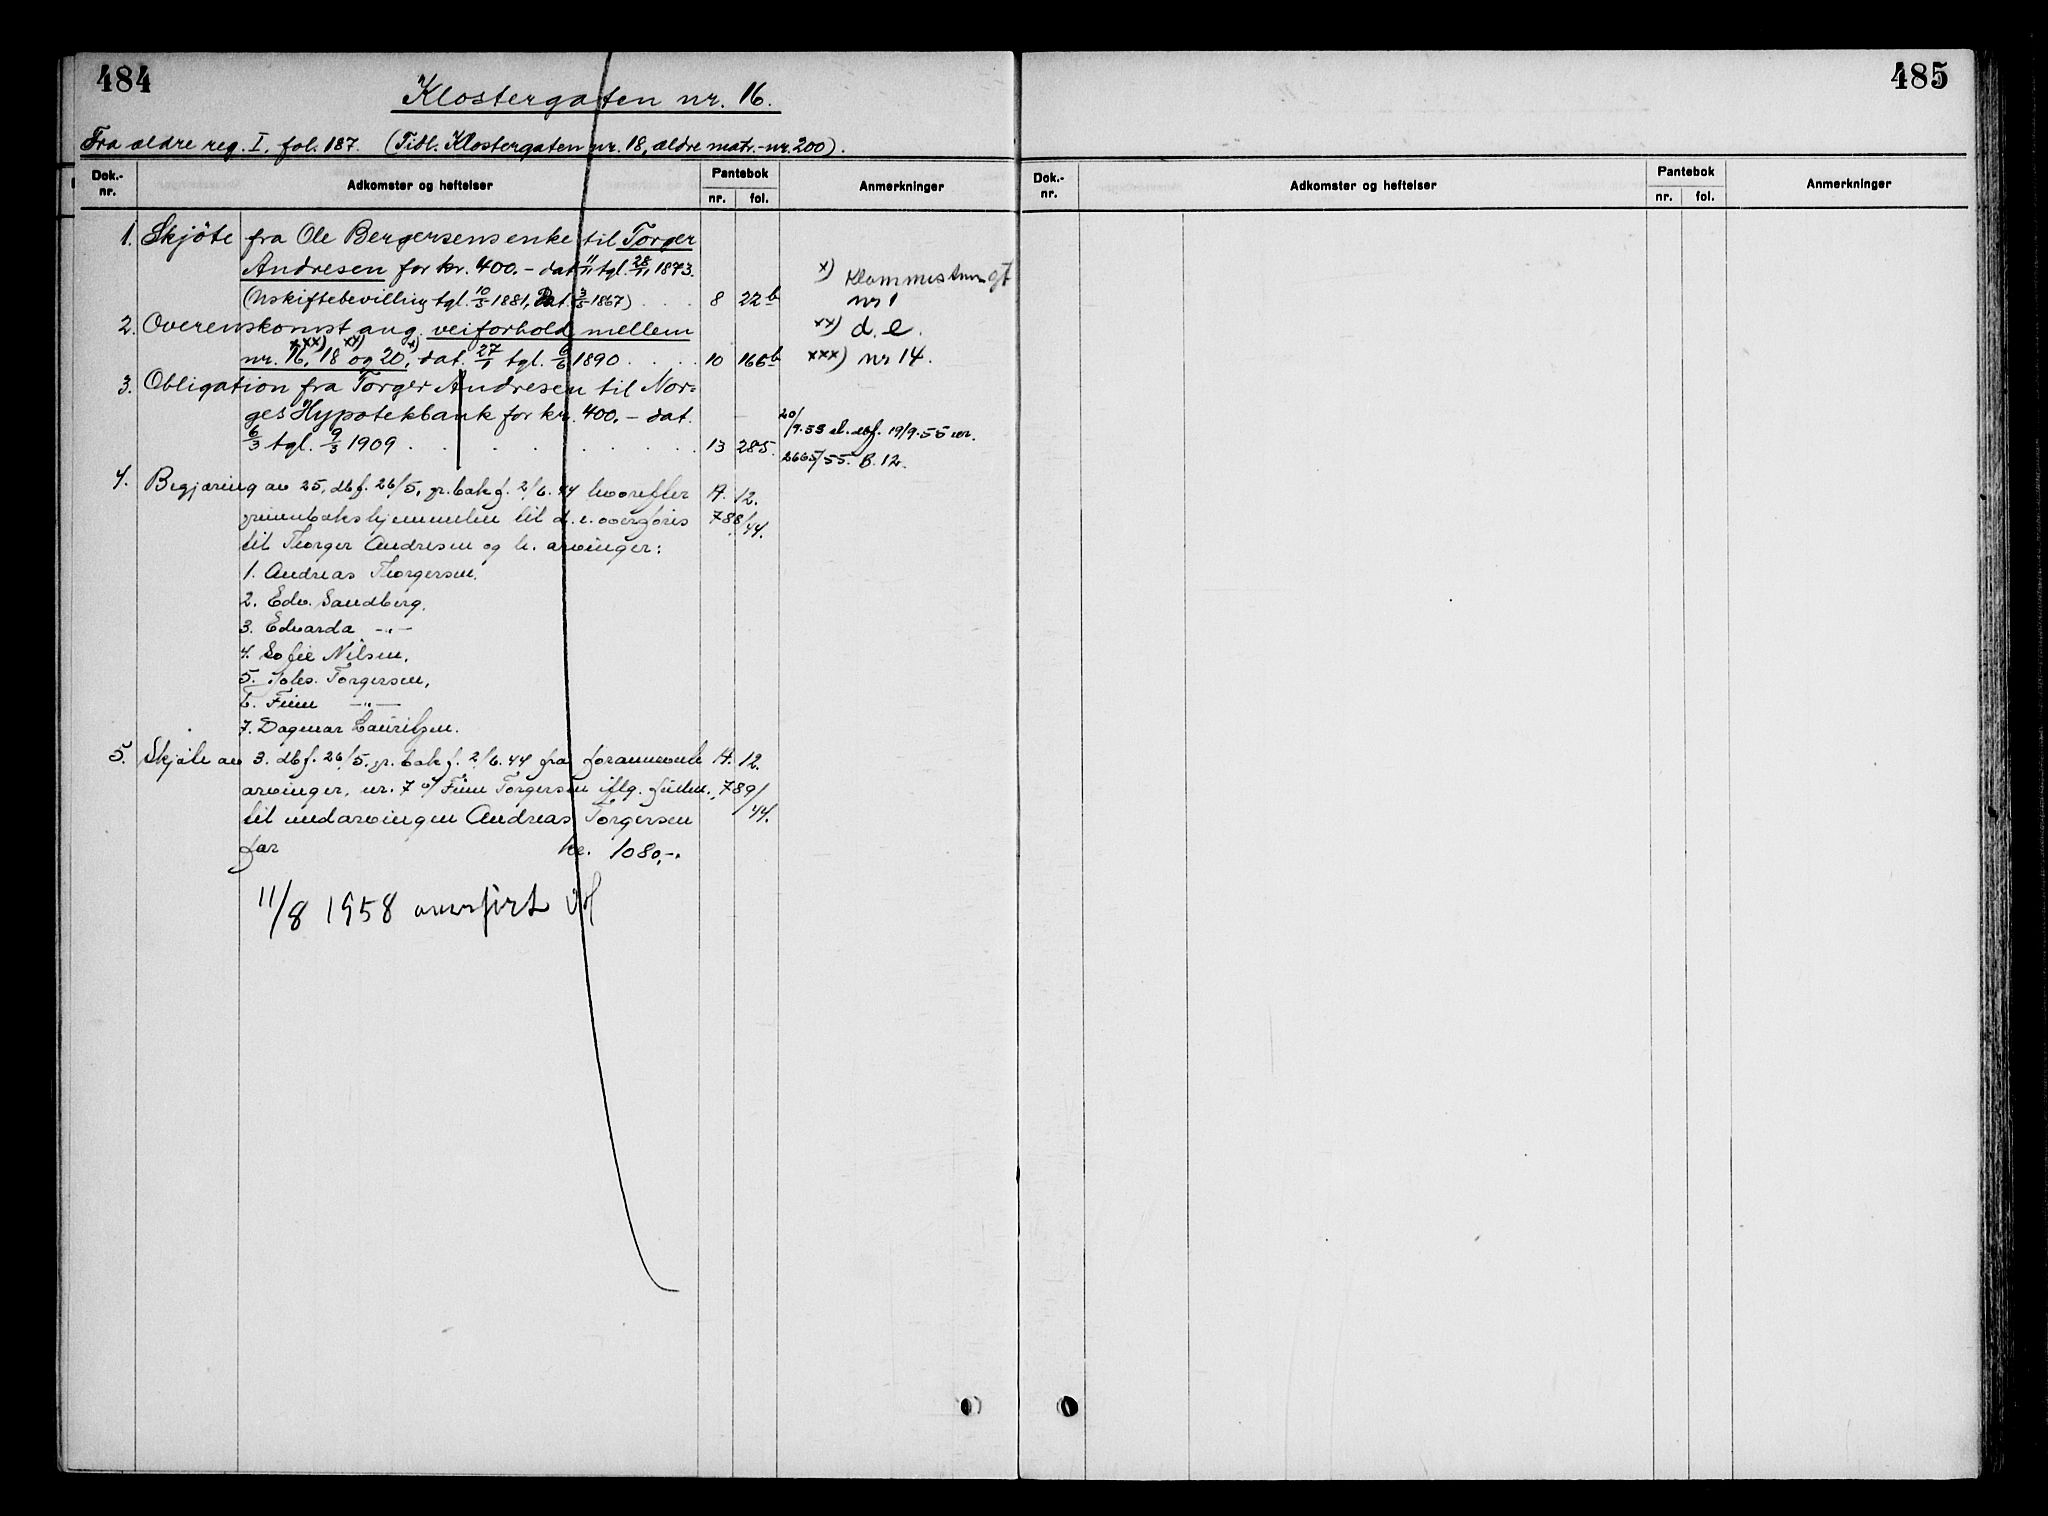 484
Klostergaten nr. 16.
Fra ældre reg. I, fol. 187. (Tidl. Klostergaten nr. 18, ældre matr.-nr. 200).
Dok.-nr.
Adkomster og heftelser
Pantebok
nr. fol.
Anmerkninger
1. Skjöte fra Ole Bergersens enke til Torger
Andresen for kr. 400.- dat. 11/11 tgl. 28/11 1873.
(Uskiftebevilling tgl. 10/3 1881, Dat. 3/5 1867) . . . 8 22b
2. Overenskomst ang. veiforhold mellem
nr. 16, xxx) 18 xx) og 20, x) dat. 27/1 tgl. 6/6 1890 . . . . 10 166b
3. Obligation fra Torger Andresen til Nor-
ges Hypotekbank for kr. 400.- dat.
6/3 tgl. 9/3 1909 . . . . . . . . 13 285.
4. Begjæring av 25, dbf. 26/5, gr.bok f. 2/6. 44 hvorefter A. 12.
grunnbokshjemmelen til d. e. overføres 788/44.
til Thorger Andresen og h. arvinger:
1. Andreas Thorgersen.
2. Edv. Sandberg.
3. Edvarda -"-
4. Sofie Nilsen.
5. Johs. Torgersen,
6. Finn -"-
7. Dagmar Lauritzen.
5. Skjøte av 3. dbf. 26/5, gr.bok f. 2/6. 44 fra forannevnte A. 12.
arvinger, nr. 7 v/ Finn Torgersen iflg. fullm., 789/44.
til medarvingen Andreas Torgersen
for kr. 1080,-.
11/8 1958 overført
x) Klommesteins gt
nr 1
xx) d. e.
xxx) nr 14.
20/9.55 sl. dbf. 19/9.55 nr.
2665/55. B. 12.
485
Dok.-nr.
Adkomster og heftelser
Pantebok
nr. fol.
Anmerkninger